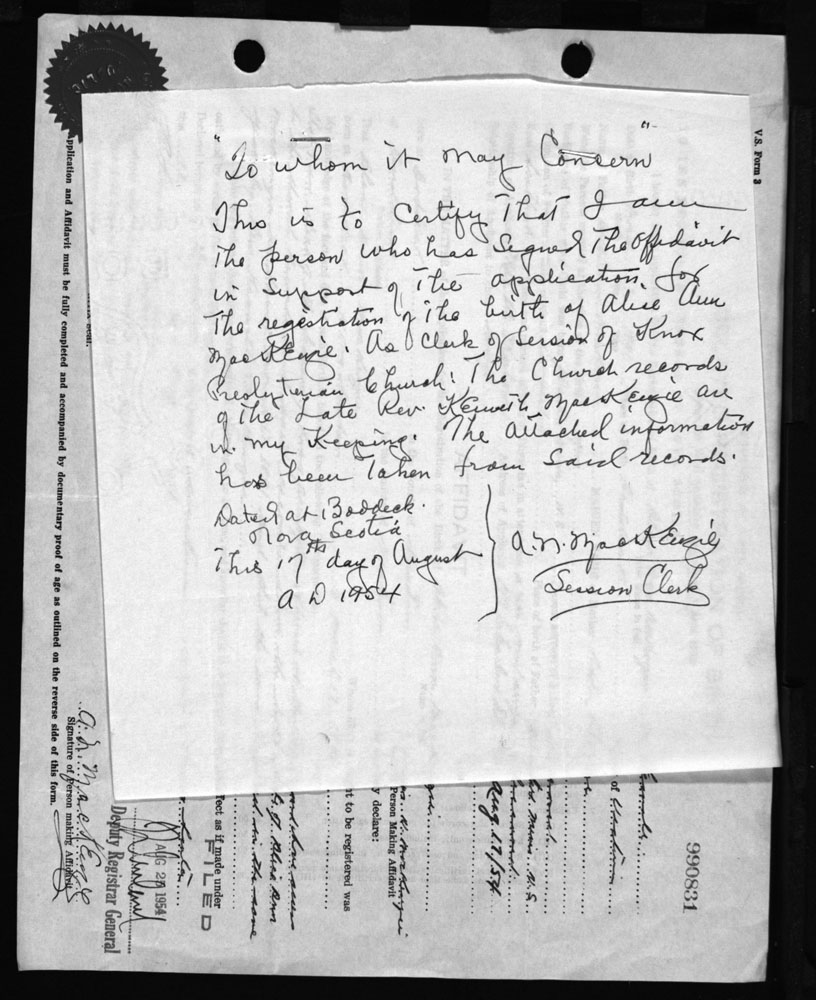 "To whom it may Concern"
This is to Certify That I am
The person who has Signed The affidavit
in Support of The application for
The registration of The birth of Alice Ann
MacKenzie. As Clerk of Session of Knox
Presbyterian Church. The Church records
of The Late Rev. Kenneth MacKenzie are
in my Keeping. The attached information
has been Taken from Said records.
Dated at Baddeck
Nova Scotia
This 17th day of August
A D 1954
A. N. MacKenzie
Session Clerk
V.S. Form 3
990831
Aug. 17/54
Person Making Affidavit
y declare:
t to be registered was
fect as if made under
FILED
AUG 27 1954
Deputy Registrar General
Signature of Person making Affidavit
Application and Affidavit must be fully completed and accompanied by documentary proof of age as outlined on the reverse side of this form.